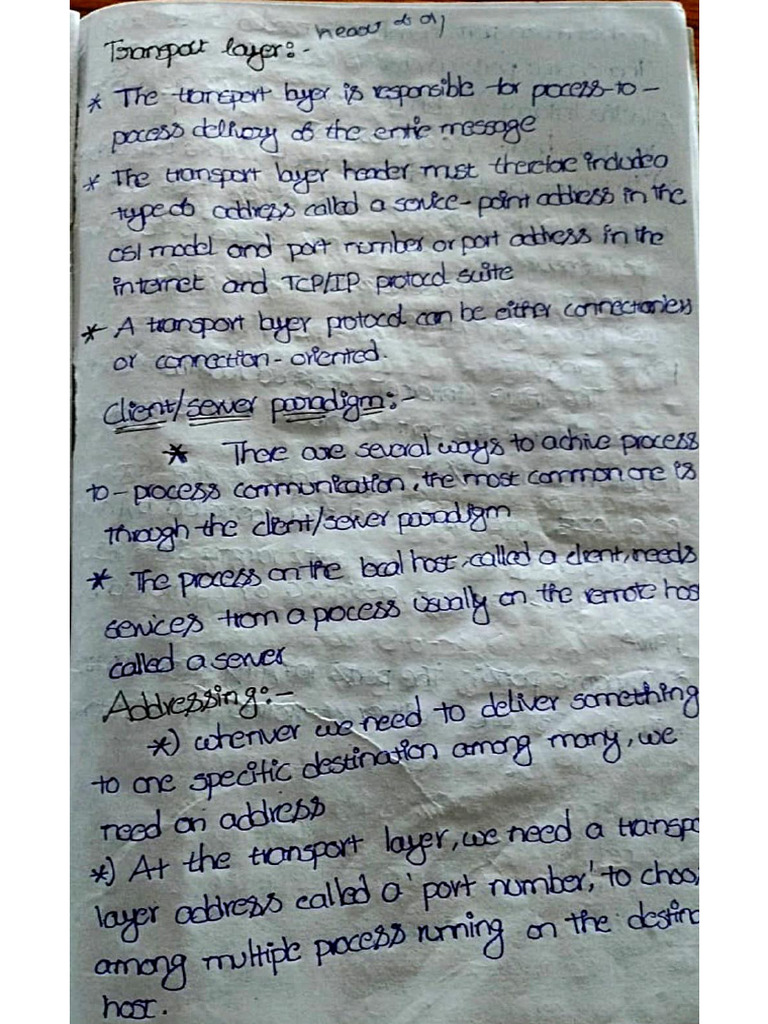 Transport layer:-
* The transport layer is responsible for process-to-
process delivery of the entire message
* The transport layer header must therefore included
type of address called a service-point address in the
OSI model and port number or port address in the
internet and TCP/IP protocol suite
* A transport layer protocol can be either connectionless
or connection-oriented.
client/server paradigm:-
* There are several ways to achive process
to-process communication, the most common one is
through the client/server paradigm
* The process on the local host, called a client, needs
services from a process usually on the remote hos
called a server
Addressing:-
*) whenver we need to deliver something
to one specific destination among many, we
need an address
*) At the transport layer, we need a transpo
layer address called a 'port number', to choo
among multiple process running on the destina
host.